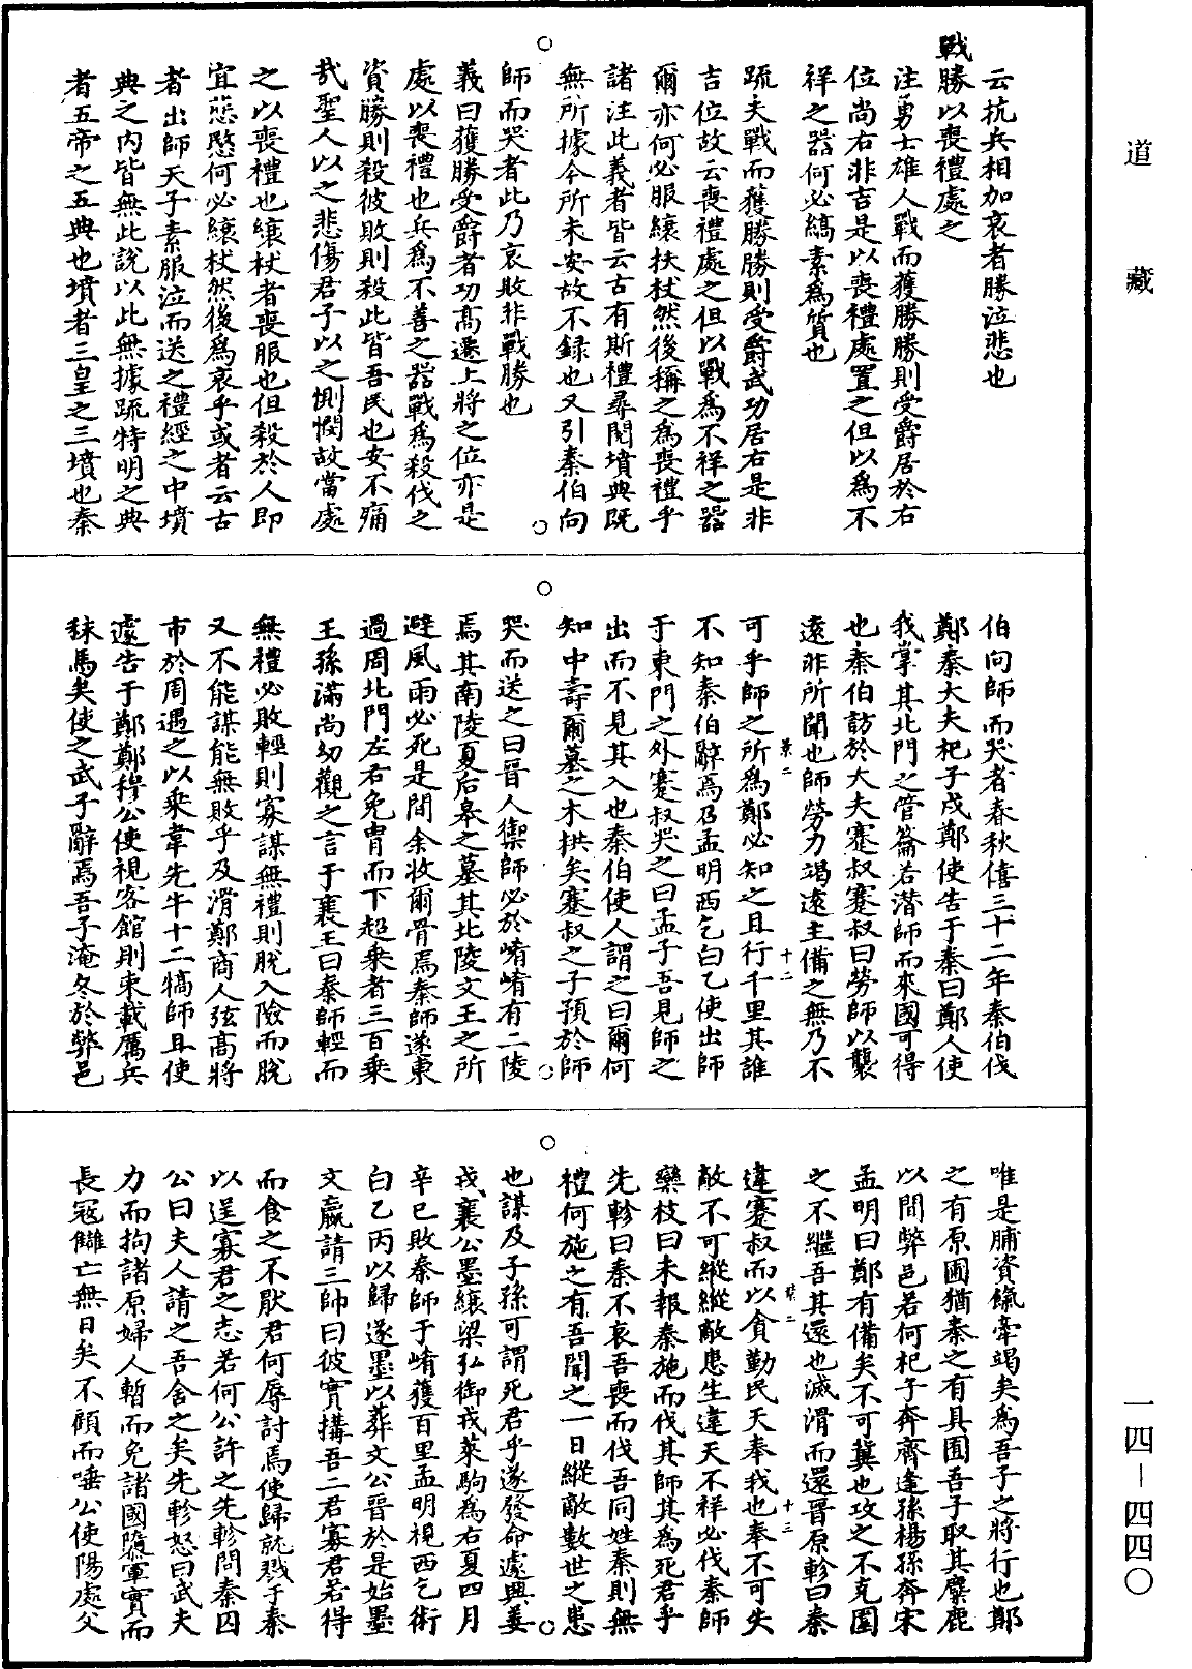 道藏
云抗兵相加哀者勝泣悲也
戰勝以喪禮處之
注勇士雄人戰而獲勝勝則受爵居於右
位尚右非吉是以喪禮處置之但以為不
祥之器何必縞素為質也
疏夫戰而獲勝勝則受爵武功居右是非
吉位故云喪禮處之但以戰為不祥之器
爾亦何必服縗扶杖然後稱之為喪禮乎
諸注此義者皆云古有斯禮尋閱墳典既
無所據今所未安故不録也又引秦伯向
師而哭者此乃哀敗非戰勝也
義曰獲勝受爵者功高遷上將之位亦是
處以喪禮也兵為不善之器戰為殺伐之
資勝則殺彼敗則殺此皆吾民也安不痛
哉聖人以之悲傷君子以之惻憫故當處
之以喪禮也縗杖者喪服也但殺於人即
宜悲愍何必縗杖然後為哀乎或者云古
者出師天子素服泣而送之禮經之中墳
典之内皆無此說以此無據疏特明之典
者五帝之五典也墳者三皇之三墳也秦
伯向師而哭者春秋僖三十二年秦伯伐
鄭秦大夫杞子戍鄭使告于秦曰鄭人使
我掌其北門之管籥若潛師而來國可得
也秦伯訪於大夫蹇叔蹇叔曰勞師以襲
遠非所聞也師勞力竭遠主備之無乃不
可乎師之所為鄭必知之且行千里其誰
不知秦伯辭焉召孟明西乞白乙使出師
于東門之外蹇叔哭之曰孟子吾見師之
出而不見其入也秦伯使人謂之曰爾何
知中壽爾墓之木拱矣蹇叔之子預於師
哭而送之曰晉人禦師必於崤崤有二陵
焉其南陵夏后皋之墓其北陵文王之所
避風雨必死是間余收爾骨焉秦師遂東
過周北門左右免胄而下超乘者三百乘
王孫滿尚幼觀之言于襄王曰秦師輕而
無禮必敗輕則寡謀無禮則脫入險而脫
又不能謀能無敗乎及滑鄭商人弦高將
市於周遇之以乘韋先牛十二犒師且使
遽告于鄭鄭穆公使視客館則束載厲兵
秣馬矣使之武子辭焉吾子淹久於弊邑
唯是脯資餼牽竭矣為吾子之將行也鄭
之有原圃猶秦之有具囿吾子取其麋鹿
以閒弊邑若何杞子奔齊逢孫楊孫奔宋
孟明曰鄭有備矣不可冀也攻之不克圍
之不繼吾其還也滅滑而還晉原軫曰秦
違蹇叔而以貪勤民天奉我也奉不可失
敵不可縱縱敵患生違天不祥必伐秦師
欒枝曰未報秦施而伐其師其為死君乎
先軫曰秦不哀吾喪而伐吾同姓秦則無
禮何施之有吾聞之一日縱敵數世之患
也謀及子孫可謂死君乎遂發命遽興姜
戎襄公墨縗梁弘御戎萊駒為右夏四月
辛巳敗秦師于崤獲百里孟明視西乞術
白乙丙以歸遂墨以葬文公晉於是始墨
文嬴請三帥曰彼實搆吾二君寡君若得
而食之不猒君何辱討焉使歸就戮于秦
以逞寡君之志若何公許之先軫問秦囚
公曰夫人請之吾舍之矣先軫怒曰武夫
力而拘諸原婦人暫而免諸國隳軍實而
長寇讎亡無日矣不顧而唾公使陽處父
一四—四四〇